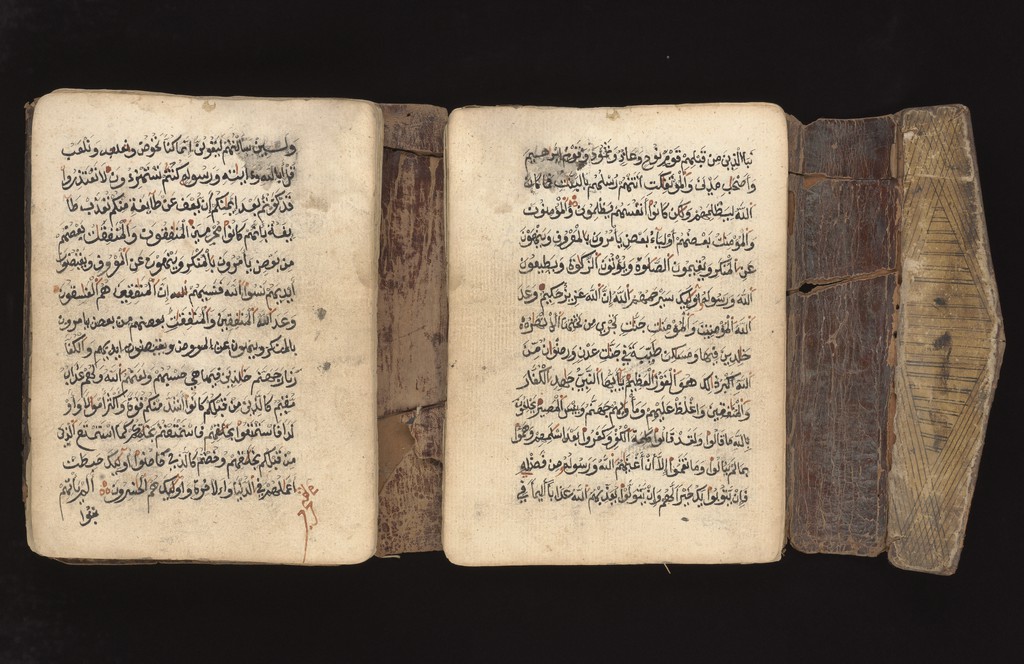 ولين سالتهم ليقولن انما كنا نخوض ونلعب ونلعب
قل ابالله وءايته ورسوله كنتم تستهزءون لا تعتذروا
قد كفرتم بعد ايمنكم ان يعف عن طايفة منكم تعذب طا
يفة بانهم كانوا مجرمين المنفقون والمنفقت بعضهم
من بعض يامرون بالمنكر وينهون عن المعروف ويقبضون
ايديهم نسوا الله فنسيهم ان المنفقين هم الفسقون
وعد الله المنفقين والمنفقت بعضهم من بعض يامرون
بالمنكر وينهون عن المعروف ويقبضون ايديهم والكفا
رنار جهنم خلدين فيها هي حسبهم ولعنهم الله ولهم عذاب
مقيم كالذين من قبلكم كانوا اشد منكم قوة واكثر امولا واو
لدا فاستمتعوا بخلقهم فاستمتعتم بخلقكم كما استمتع الذين
من قبلكم بخلقهم وخضتم كالذي خاضوا اوليك حبطت
اعملهم في الدنيا والاخرة واوليك هم الخسرون الم ياتهم
نبوا
نبا الذين من قبلهم قوم نوح وعاد وثمود وقوم ابرهيم
واصحب مدين والموتفكت اتتهم رسلهم بالبينت فما كان
الله ليظلمهم ولكن كانوا انفسهم يظلمون والمومنون
والمومنت بعضهم اولياء بعض يامرون بالمعروف وينهون
عن المنكر ويقيمون الصلوة ويوتون الزكوة ويطيعون
الله ورسوله اوليك سيرحمهم الله ان الله عزيز حكيم وعد
الله المومنين والمومنت جنت تجري من تحتها الانهار
خلدين فيها ومسكن طيبة في جنت عدن ورضوان من
الله اكبر ذلك هو الفوز العظيم يايها النبي جهد الكفار
والمنفقين واغلظ عليهم وماويهم جهنم وبيس المصير يحلفون
بالله ما قالوا ولقد قالوا كلمة الكفر وكفروا بعد اسلمهم وهموا
بما لم ينالوا وما نقموا الا ان اغنيهم الله ورسوله من فضله
فان يتوبوا يك خيرا لهم وان يتولوا يعذبهم الله عذابا اليما في